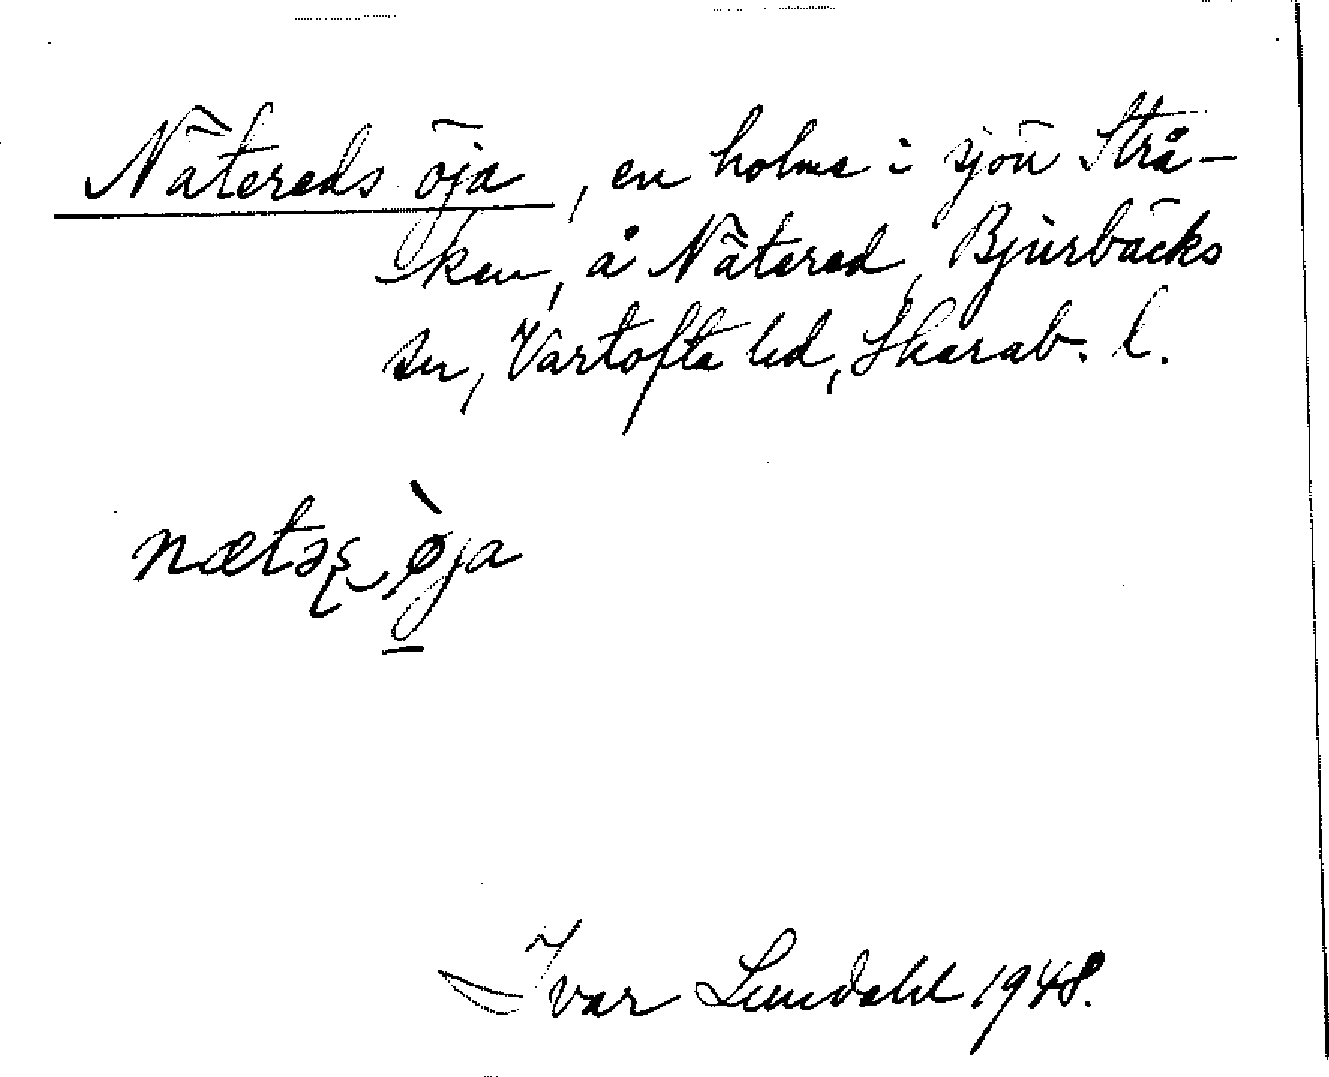 Nätereds öja, en holme i sjön Strå-
ken, å Nätered, Bjurbäcks
sn, Vartofta hd, Skarab. l.
nætəʂ ø̀ja
Ivar Lundahl 1948.